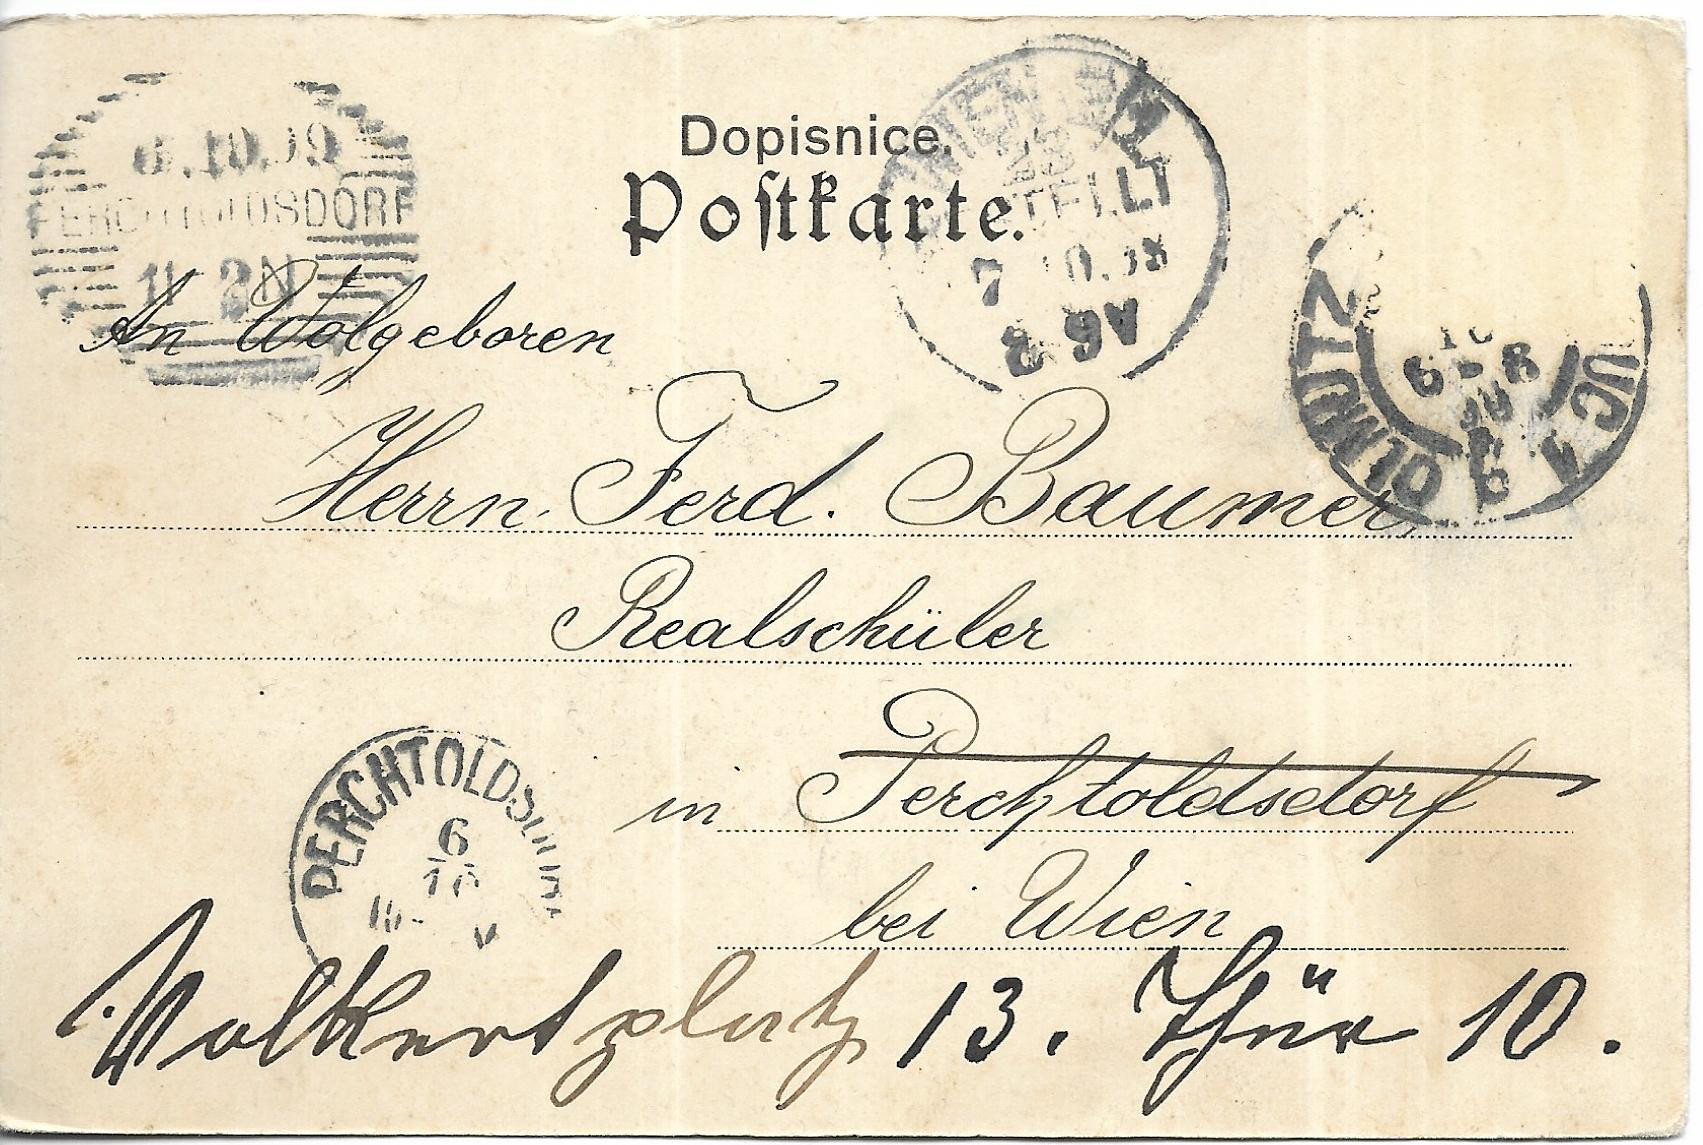 6.10.99
PERCHTOLDSDORF
11 2N
Dopisnice.
Postkarte.
WIEN
BESTELLT
7 10.98
8 9V
OLMÜTZ
6-8
An Wolgeboren
Herrn Ferd. Baumer
Realschüler
in Perchtoldsdorf
bei Wien
PERCHTOLDSDORF
6
10
V
Volkertplatz 13. Thür 10.